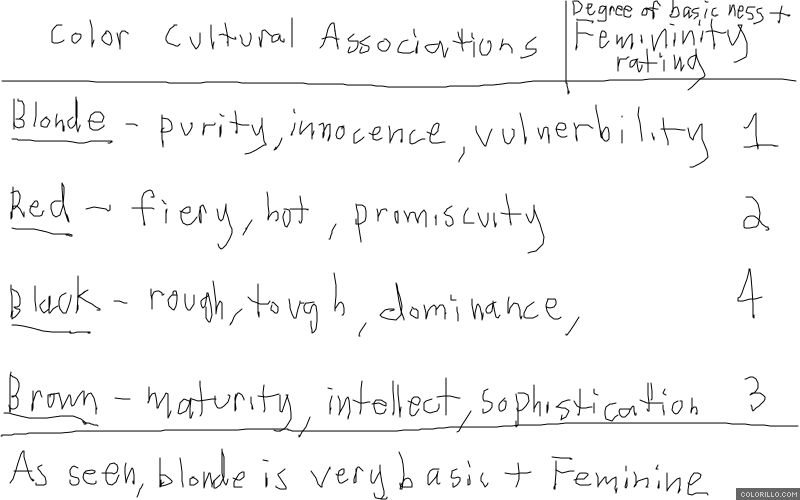 Color Cultural Associations
Degree of basic ness +
Femininity
rating
Blonde - purity, innocence, vulnerbility 1
Red - fiery, hot, promiscuity 2
Black - rough, tough, dominance, 4
Brown - maturity, intellect, sophistication 3
As seen, blonde is very basic + Feminine
COLORILLO.COM